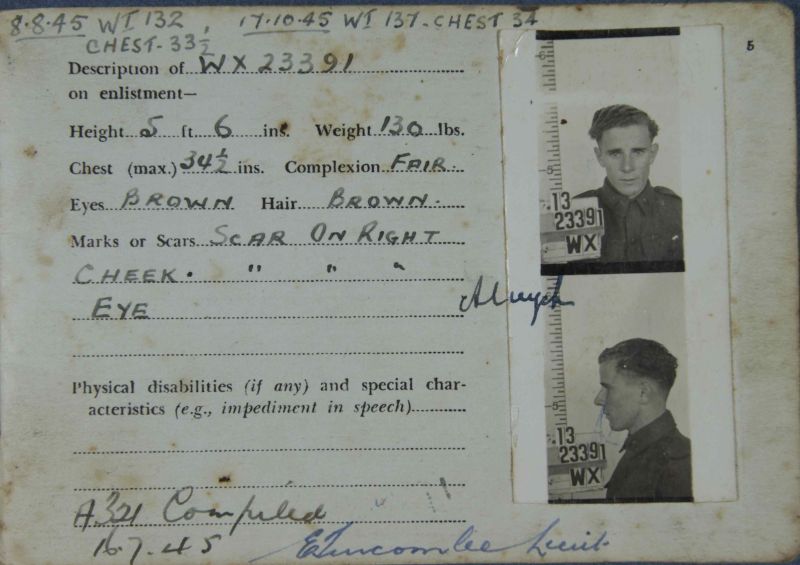 8.8.45 WT 132, 17.10.45 WT 137-CHEST 34
CHEST-33½
5
Description of WX 23391
on enlistment—
Height 5 ft. 6 ins. Weight 130 lbs.
Chest (max.) 34½ ins. Complexion FAIR.
Eyes BROWN Hair BROWN.
Marks or Scars SCAR ON RIGHT
CHEEK. " " "
EYE
Physical disabilities (if any) and special char-
acteristics (e.g., impediment in speech)
Compiled
16.7.45
Lieut.
6
5
.13
23391
WX
5
.13
23391
WX